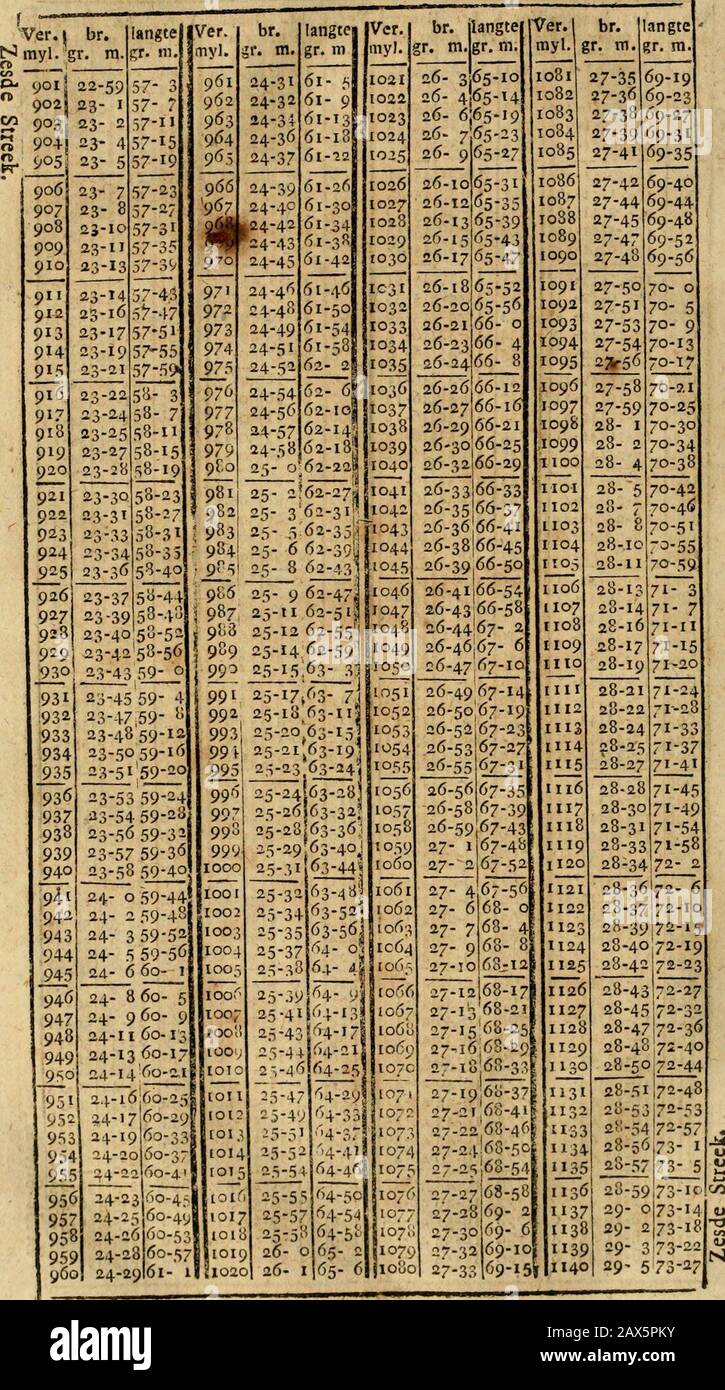 Zesde Streek.
Ver. myl. | br. gr. m. | langte gr. m. | Ver. myl. | br. gr. m. | langte gr. m | Ver. myl. | br. gr. m. | langte gr. m. | Ver. myl. | br. gr. m. | langte gr. m.
901 22-59 57- 3 961 24-31 61- 5 1021 26- 3 65-10 1081 27-35 69-19
902 23- 1 57- 7 962 24-32 61- 9 1022 26- 4 65-14 1082 27-36 69-23
903 23- 2 57-11 963 24-34 61-13 1023 26- 6 65-19 1083 27-38 69-27
904 23- 4 57-15 964 24-36 61-18 1024 26- 7 65-23 1084 27-39 69-31
905 23- 5 57-19 965 24-37 61-22 1025 26- 9 65-27 1085 27-41 69-35
906 23- 7 57-23 966 24-39 61-26 1026 26-10 65-31 1086 27-42 69-40
907 23- 8 57-27 967 24-40 61-30 1027 26-12 65-35 1087 27-44 69-44
908 23-10 57-31 968 24-42 61-34 1028 26-13 65-39 1088 27-45 69-48
909 23-11 57-35 24-43 61-38 1029 26-15 65-43 1089 27-47 69-52
910 23-13 57-39 970 24-45 61-42 1030 26-17 65-47 1090 27-48 69-56
911 23-14 57-43 971 24-46 61-46 1031 26-18 65-52 1091 27-50 70- 0
912 23-16 57-47 972 24-48 61-50 1032 26-20 65-56 1092 27-51 70- 5
913 23-17 57-51 973 24-49 61-54 1033 26-21 66- 0 1093 27-53 70- 9
914 23-19 57-55 974 24-51 61-58 1034 26-23 66- 4 1094 27-54 70-13
915 23-21 57-59 975 24-52 62- 2 1035 26-24 66- 8 1095 27-56 70-17
916 23-22 58- 3 976 24-54 62- 6 1036 26-26 66-12 1096 27-58 70-21
917 23-24 58- 7 977 24-56 62-10 1037 26-27 66-16 1097 27-59 70-25
918 23-25 58-11 978 24-57 62-14 1038 26-29 66-21 1098 28- 1 70-30
919 23-27 58-15 979 24-58 62-18 1039 26-30 66-25 1099 28- 2 70-34
920 23-28 58-19 980 25- 0 62-22 1040 26-32 66-29 1100 28- 4 70-38
921 23-30 58-23 981 25- 2 62-27 1041 26-33 66-33 1101 28- 5 70-42
922 23-31 58-27 982 25- 3 62-31 1042 26-35 66-37 1102 28- 7 70-46
923 23-33 58-31 983 25- 5 62-35 1043 26-36 66-41 1103 28- 8 70-51
924 23-34 58-35 984 25- 6 62-39 1044 26-38 66-45 1104 28-10 70-55
925 23-36 58-40 985 25- 8 62-43 1045 26-39 66-50 1105 28-11 70-59
926 23-37 58-44 986 25- 9 62-47 1046 26-41 66-54 1106 28-13 71- 3
927 23-39 58-48 987 25-11 62-51 1047 26-43 66-58 1107 28-14 71- 7
928 23-40 58-52 988 25-12 62-55 1048 26-44 67- 2 1108 28-16 71-11
929 23-42 58-56 989 25-14 62-59 1049 26-46 67- 6 1109 28-17 71-15
930 23-43 59- 0 990 25-15 63- 3 1050 26-47 67-10 1110 28-19 71-20
931 23-45 59- 4 991 25-17 63- 7 1051 26-49 67-14 1111 28-21 71-24
932 23-47 59- 8 992 25-18 63-11 1052 26-50 67-19 1112 28-22 71-28
933 23-48 59-12 993 25-20 63-15 1053 26-52 67-23 1113 28-24 71-33
934 23-50 59-16 994 25-21 63-19 1054 26-53 67-27 1114 28-25 71-37
935 23-51 59-20 995 25-23 63-24 1055 26-55 67-31 1115 28-27 71-41
936 23-53 59-24 996 25-24 63-28 1056 26-56 67-35 1116 28-28 71-45
937 23-54 59-28 997 25-26 63-32 1057 26-58 67-39 1117 28-30 71-49
938 23-56 59-32 998 25-28 63-36 1058 26-59 67-43 1118 28-31 71-54
939 23-57 59-36 999 25-29 63-40 1059 27- 1 67-48 1119 28-33 71-58
940 23-58 59-40 1000 25-31 63-44 1060 27- 2 67-52 1120 28-34 72- 2
941 24- 0 59-44 1001 25-32 63-48 1061 27- 4 67-56 1121 28-36 72- 6
942 24- 2 59-48 1002 25-34 63-52 1062 27- 6 68- 0 1122 28-37 72-10
943 24- 3 59-52 1003 25-35 63-56 1063 27- 7 68- 4 1123 28-39 72-15
944 24- 5 59-56 1004 25-37 64- 0 1064 27- 9 68- 8 1124 28-40 72-19
945 24- 6 60- 1 1005 25-38 64- 4 1065 27-10 68-12 1125 28-42 72-23
946 24- 8 60- 5 1006 25-39 64- 9 1066 27-12 68-17 1126 28-43 72-27
947 24- 9 60- 9 1007 25-41 64-13 1067 27-13 68-21 1127 28-45 72-32
948 24-11 60-13 1008 25-43 64-17 1068 27-15 68-25 1128 28-47 72-36
949 24-13 60-17 1009 25-44 64-21 1069 27-16 68-29 1129 28-48 72-40
950 24-14 60-21 1010 25-46 64-25 1070 27-18 68-33 1130 28-50 72-44
951 24-16 60-25 1011 25-47 64-29 1071 27-19 68-37 1131 28-51 72-48
952 24-17 60-29 1012 25-49 64-33 1072 27-21 68-41 1132 28-53 72-53
953 24-19 60-33 1013 25-51 64-37 1073 27-22 68-46 1133 28-54 72-57
954 24-20 60-37 1014 25-52 64-41 1074 27-24 68-50 1134 28-56 73- 1
955 24-22 60-41 1015 25-54 64-46 1075 27-25 68-54 1135 28-57 73- 5
956 24-23 60-45 1016 25-55 64-50 1076 27-27 68-58 1136 28-59 73-10
957 24-25 60-49 1017 25-57 64-54 1077 27-28 69- 2 1137 29- 0 73-14
958 24-26 60-53 1018 25-58 64-58 1078 27-30 69- 6 1138 29- 2 73-18
959 24-28 60-57 1019 26- 0 65- 2 1079 27-32 69-10 1139 29- 3 73-22
960 24-29 61- 1 1020 26- 1 65- 6 1080 27-33 69-15 1140 29- 5 73-27
Zesde Streek.
alamy
Image ID: 2AX5PKY
www.alamy.com